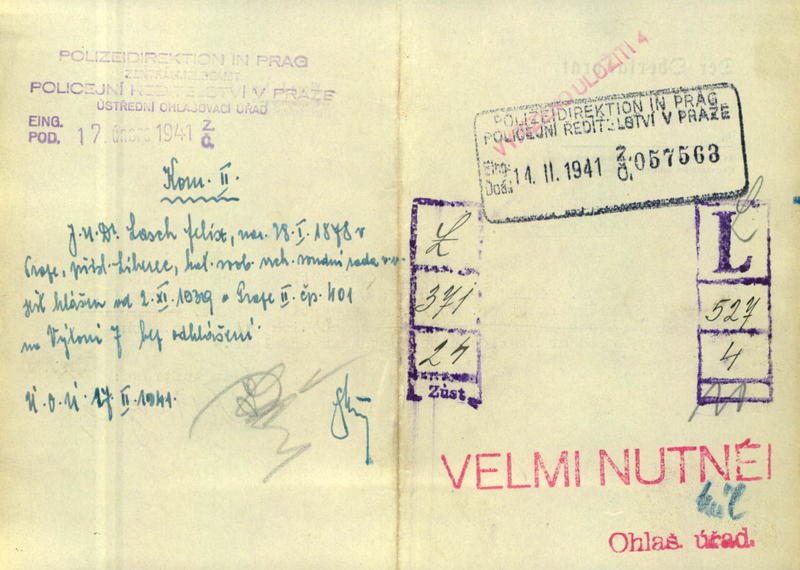 POLIZEIDIREKTION IN PRAG
ZENTRALMELDEAMT
POLICEJNÍ ŘEDITELSTVÍ V PRAZE
ÚSTŘEDNÍ OHLAŠOVACÍ ÚŘAD
EING.
POD. 17. února 1941 Z. Č.
Kom. II.
J.U.Dr. Lasch Felix, nar. 28.I.1878 v
Praze, přísl. Liberec, vrch. soudní rada v.v.
hlášen od 2.XI.1939 v Praze II. čp. 401
na Výtoni 7 bez odhlášení.
Ú.O.Ú. 17.II.1941.
ULOŽITI 4
POLIZEIDIREKTION IN PRAG
POLICEJNÍ ŘEDITELSTVÍ V PRAZE
Eing.
Doš. 14. II. 1941 Z. Č. 057563
L
371
24
Zúst.
L
L
527
4
VELMI NUTNÉ!
Ohlaš. úřad.